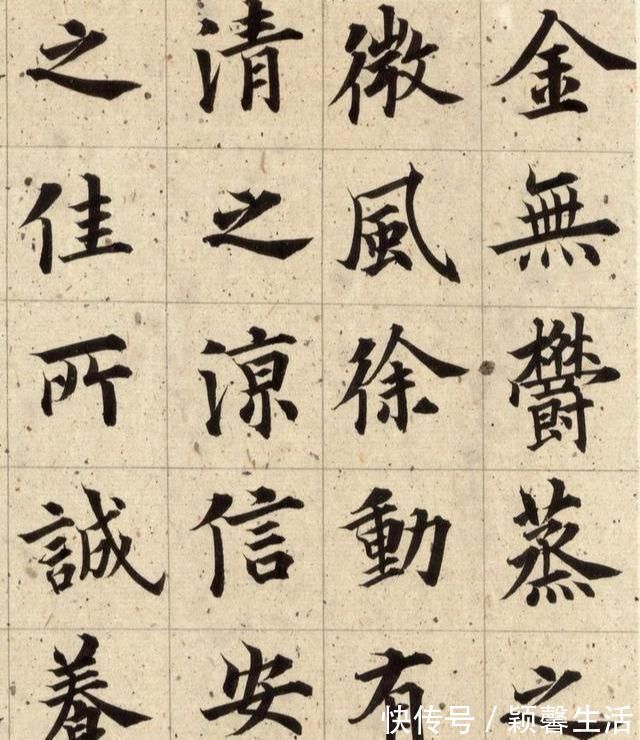 金無欝蒸之
微風徐動有
清之涼信安
之佳所誠養
快传号/颖馨生活